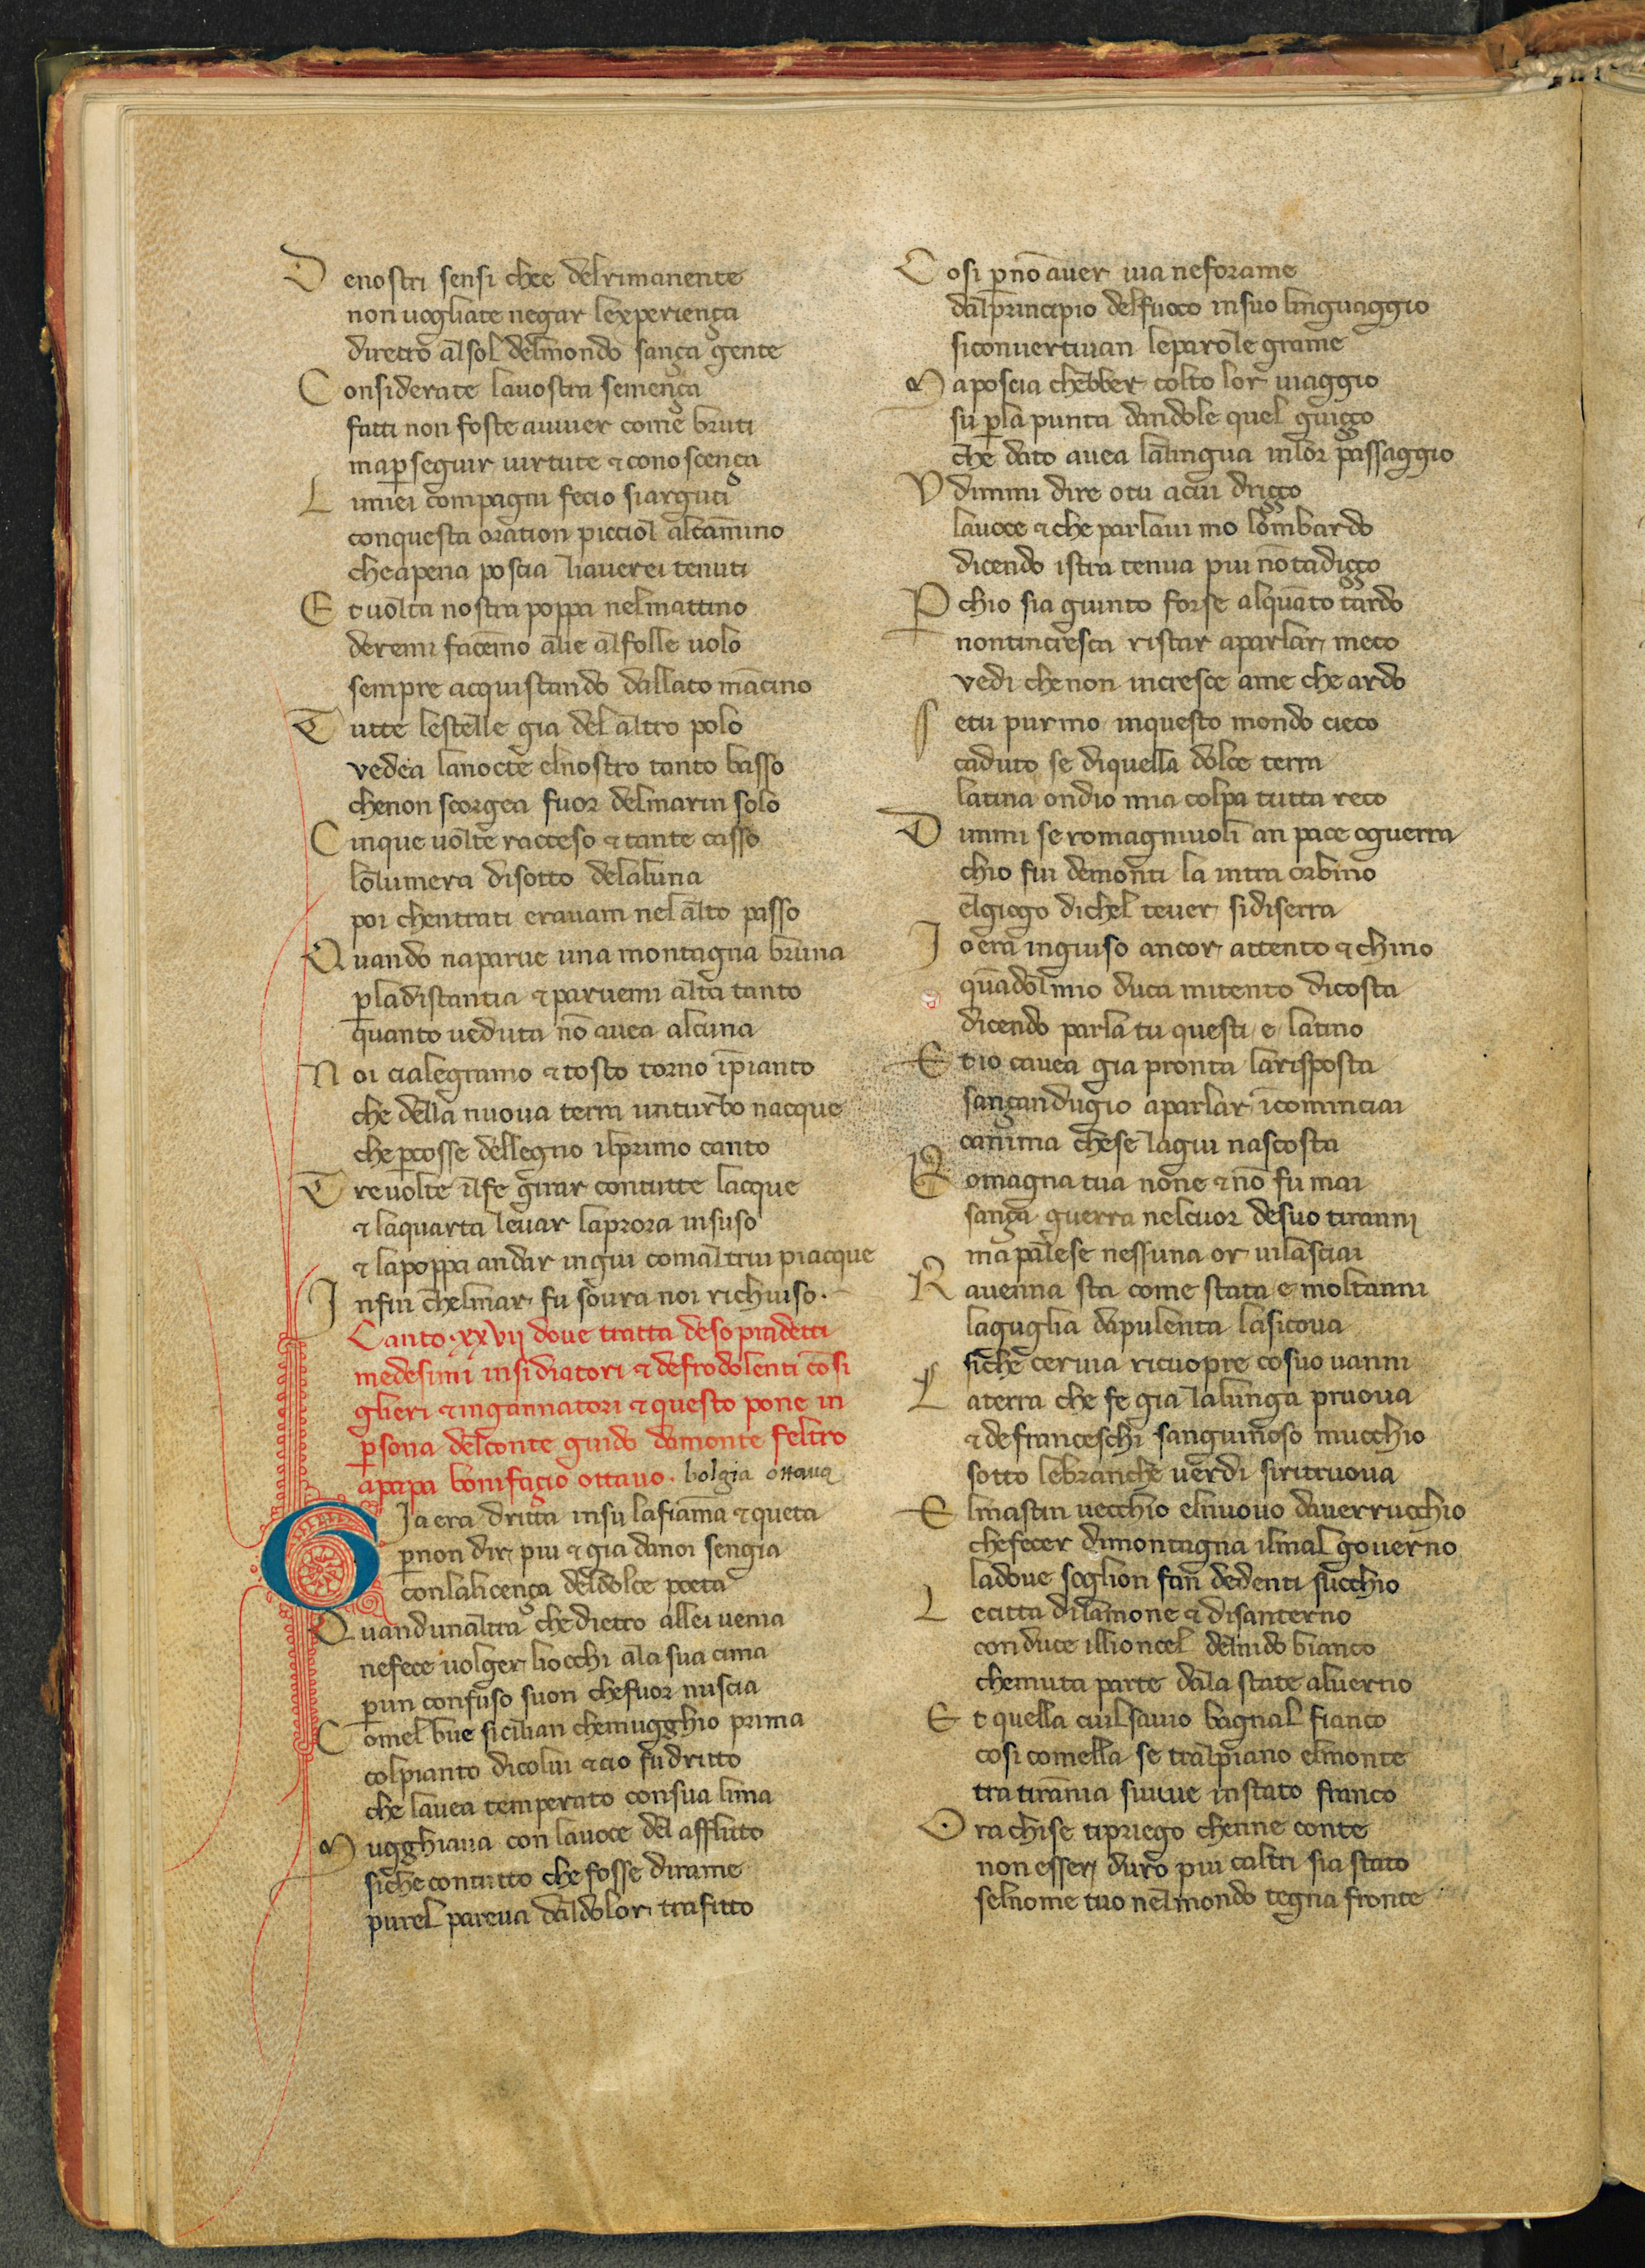 D enostri sensi chee delrimanente
non uogliate negar lexperiença
diretro alsol delmondo sança gente
C onsiderate lauostra semença
fatti non foste auiuer come bruti
map̱seguir uirtute ⁊ conoscença
L imiei compagni fecio siarguti
conquesta oration picciol alcamino
cheapena poscia liauerei tenuti
E t uolta nostra poppa nelmattino
deremi facemo alie alfolle uolo
sempre acquistando dallato mãcino
T utte lestelle gia del altro polo
vedea lanocte elnostro tanto basso
chenon scorgea fuor delmarin solo
C inque uolte racceso ⁊ tante casso
lolumera disotto delaluna
poi chentrati erauam nel alto passo
Q uando naparue una montagna bruna
p̱ladistantia ⁊ paruemi alta tanto
quanto ueduta nõ auea alcuna
N oi cialegramo ⁊ tosto torno ĩpianto
che della nuoua terra unturbo nacque
chep̱cosse dellegno ilprimo canto
T reuolte ilfe girar contutte lacque
⁊ laquarta leuar laprora insuso
⁊ lapoppa andar ingiu comaltrui piacque
I nfin chelmar fu soura noi richiuso.
Canto .xxvij doue tratta desopradetti
medesimi insidiatori ⁊ defrodolenti cõsi
glieri ⁊ ingannatori ⁊ questo pone in
p̱sona delconte guido damonte feltro
apapa bonifaçio ottauo. bolgia ottaua
G Ia era dritta insu lafiãma ⁊ queta
p̱non dir piu ⁊ gia danoi sengia
conlalicença deldolce poeta
Q uandunaltra chedietro allei uenia
nefece uolger liocchi ala sua cima
p̱un confuso suon chefuor nuscia
C omel bue sicilian chemugghio prima
colpianto dicolui ⁊ cio fu dritto
che lauea temperato consua lima
M ugghiaua con lauoce del afflitto
siche contutto che fosse dirame
purel pareua daldolor trafitto
C osi p̱nõ auer uia neforame
dalprincipio delfuoco insuo linguaggio
siconuertiuan leparole grame
M aposcia chebber colto lor uiaggio
su p̱la punta dandole quel guiçço
che dato auea lalingua inlor passaggio
V dimmi dire otu acui driçço
lauoce ⁊ che parlaui mo lombardo
dicendo istra tenua piu nõtadiçço
P̱ chio sia giunto forse alquãto tardo
nontincresca ristar aparlar meco
vedi chenon incresce ame che ardo
S etu purmo inquesto mondo cieco
caduto se diquella dolce terra
latina ondio mia colpa tutta reco
D immi se romagniuoli an pace oguerra
chio fui demonti la intra orbino
elgiogo dichel teuer sidiserra
I o era ingiuso ancor attento ⁊ chino
quãdolmio duca mitento dicosta
dicendo parla tu questi e latino
E t io cauea gia pronta larisposta
sançandugio aparlar ĩcominciai
oanima chese lagiu nascosta
R omagna tua none ⁊ nõ fu mai
sança guerra nelcuor desuo tiranni
ma palese nessuna or uilasciai
R auenna sta come stata e moltanni
laguglia dapulenta lasicoua
siche ceruia ricuopre cosuo uanni
L aterra che fe gia lalunga pruoua
⁊ defranceschi sanguinoso mucchio
sotto lebranche uerdi siritruoua
E lmastin uecchio elnuouo dauerrucchio
chefecer dimontagna ilmal gouerno
ladoue soglion fan dedenti succhio
L ecitta dilamone ⁊ disanterno
conduce illioncel delnido bianco
chemuta parte dala state aluerno
E t quella cuilsauio bagnal fianco
cosi comella se tralpiano elmonte
tra tirãnia siuiue instato franco
O ra chise tipriego chenne conte
non esser duro piu caltri sia stato
selnome tuo nelmondo tegna fronte